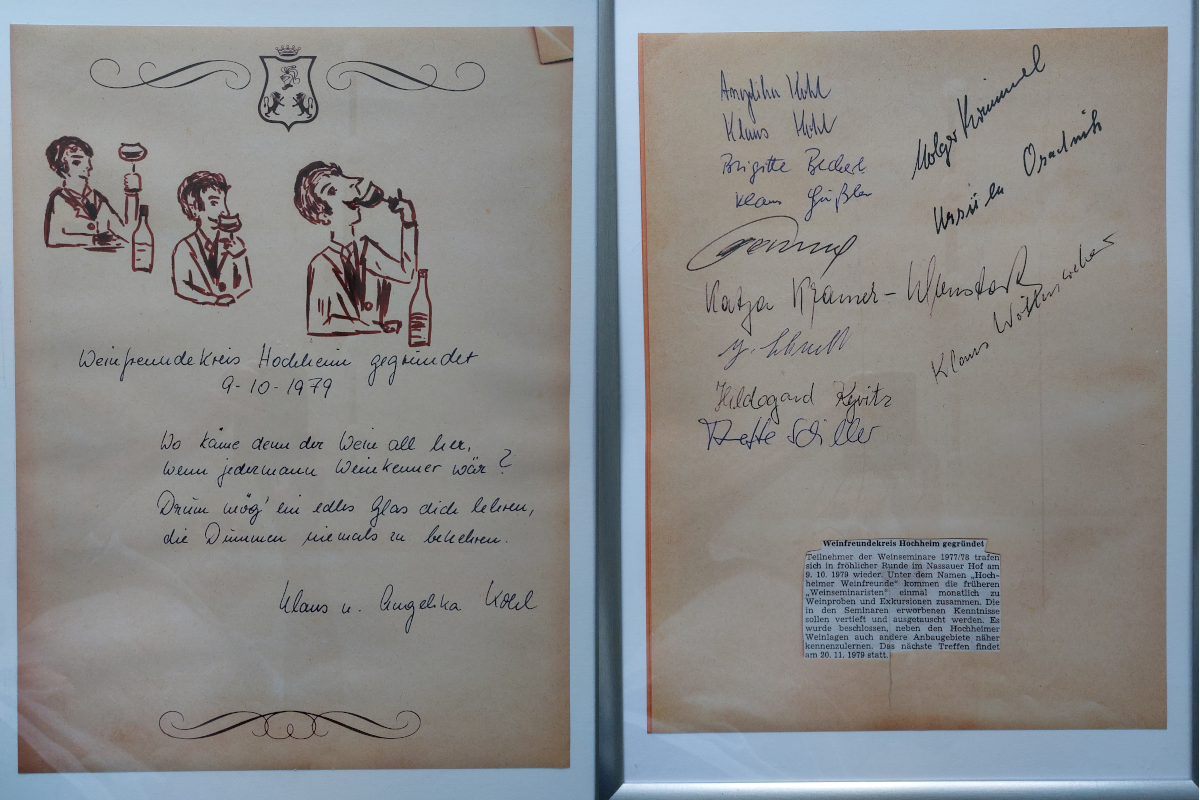 Weinfreundekreis Hochheim gegründet
9-10-1979
Wo käme denn der Wein all her,
wenn jedermann Weinkenner wär?
Drum mög' ein edles Glas dich lehren,
die Dummen niemals zu bekehren.
Klaus u. Angelika Kohl
Angelika Kohl
Klaus Kohl
Brigitte
Klaus
Holger Krümmel
Ursula Osadnik
Katja Kramer-
Klaus
Hildegard Kyritz
Schiller
Weinfreundekreis Hochheim gegründet
Teilnehmer der Weinseminare 1977/78 trafen
sich in fröhlicher Runde im Nassauer Hof am
9. 10. 1979 wieder. Unter dem Namen „Hoch-
heimer Weinfreunde" kommen die früheren
„Weinseminaristen" einmal monatlich zu
Weinproben und Exkursionen zusammen. Die
in den Seminaren erworbenen Kenntnisse
sollen vertieft und ausgetauscht werden. Es
wurde beschlossen, neben den Hochheimer
Weinlagen auch andere Anbaugebiete näher
kennenzulernen. Das nächste Treffen findet
am 20. 11. 1979 statt.